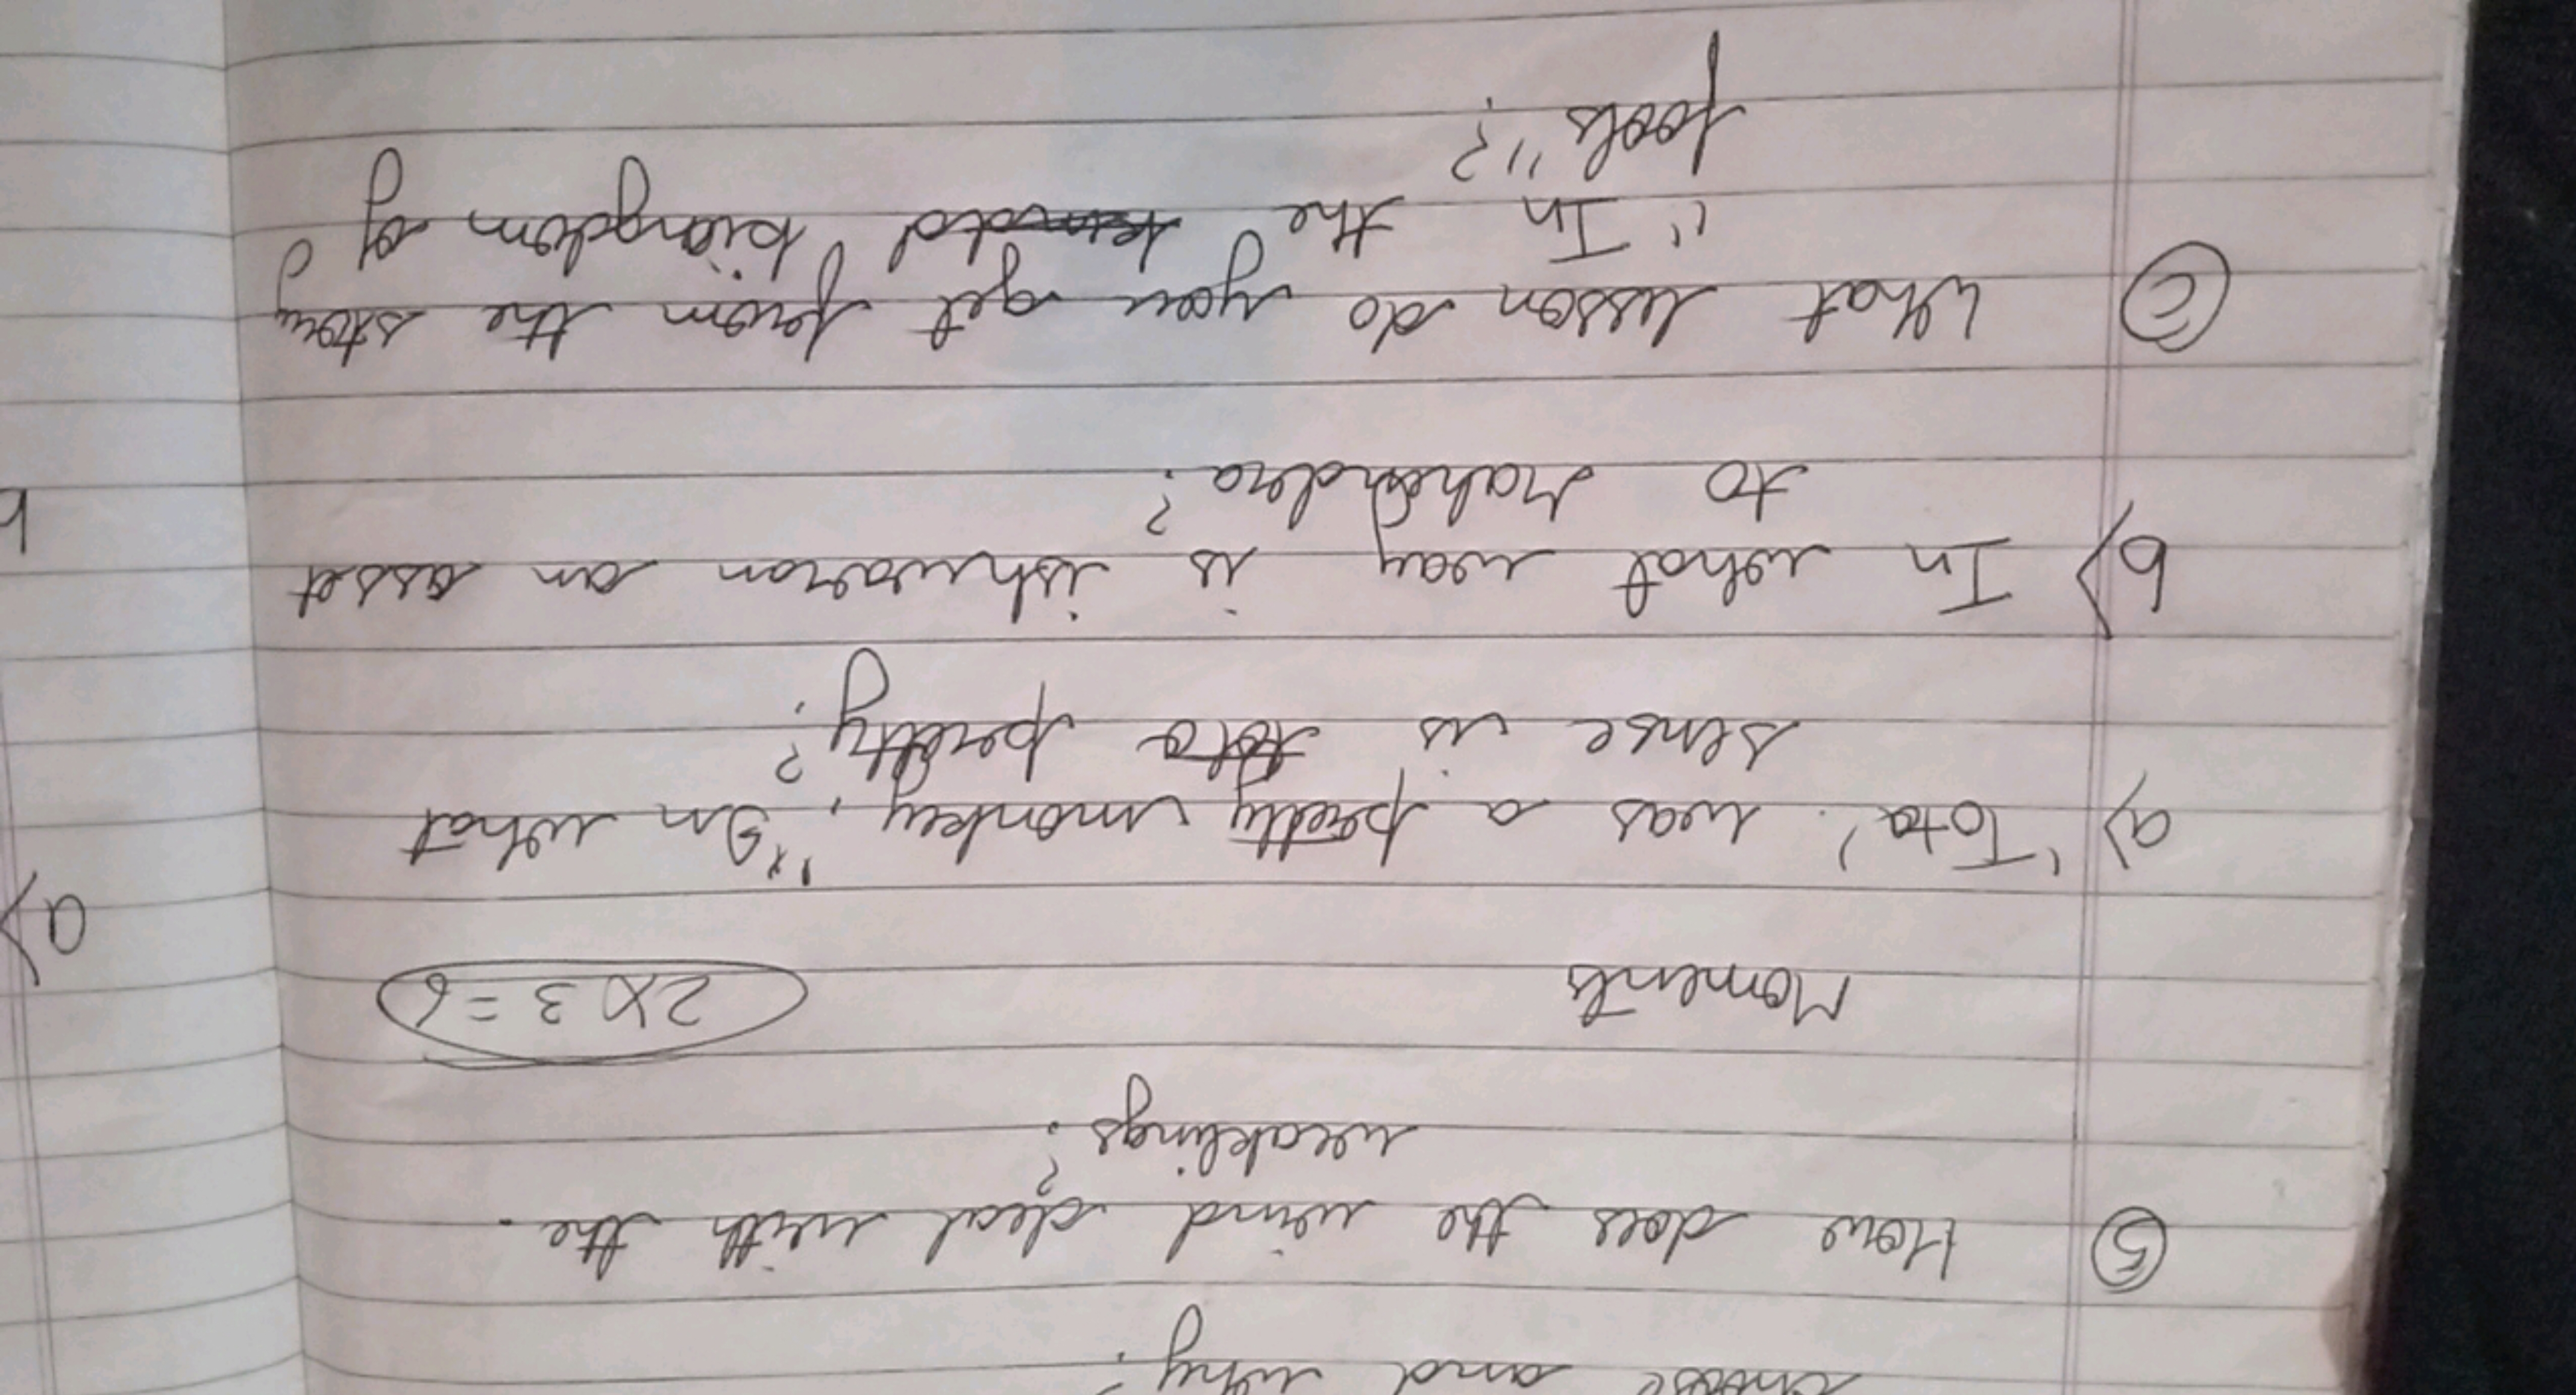 and why?
⑤ How does the wind deal with the.
weaklings?
Moments 2x3=6
a) 'Tota'. was a pretty monkey," In what
sense is toto pretty?
b) In what way is ishwaran an asset
to Mahendra?
ⓒ What lesson do you get from the story
"In the kingdom of
fools"?
a)